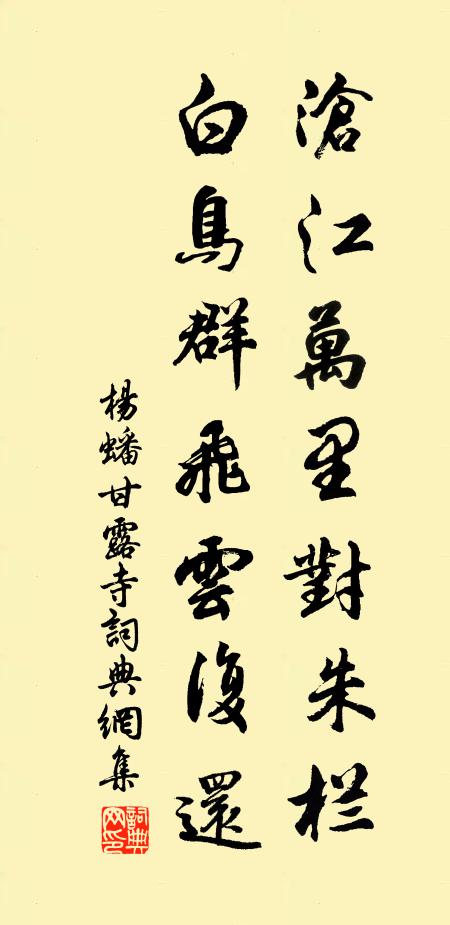 滄江萬里對朱栏
白鳥群飛雲復還
楊蟠甘露寺詞典網集
詞典网印